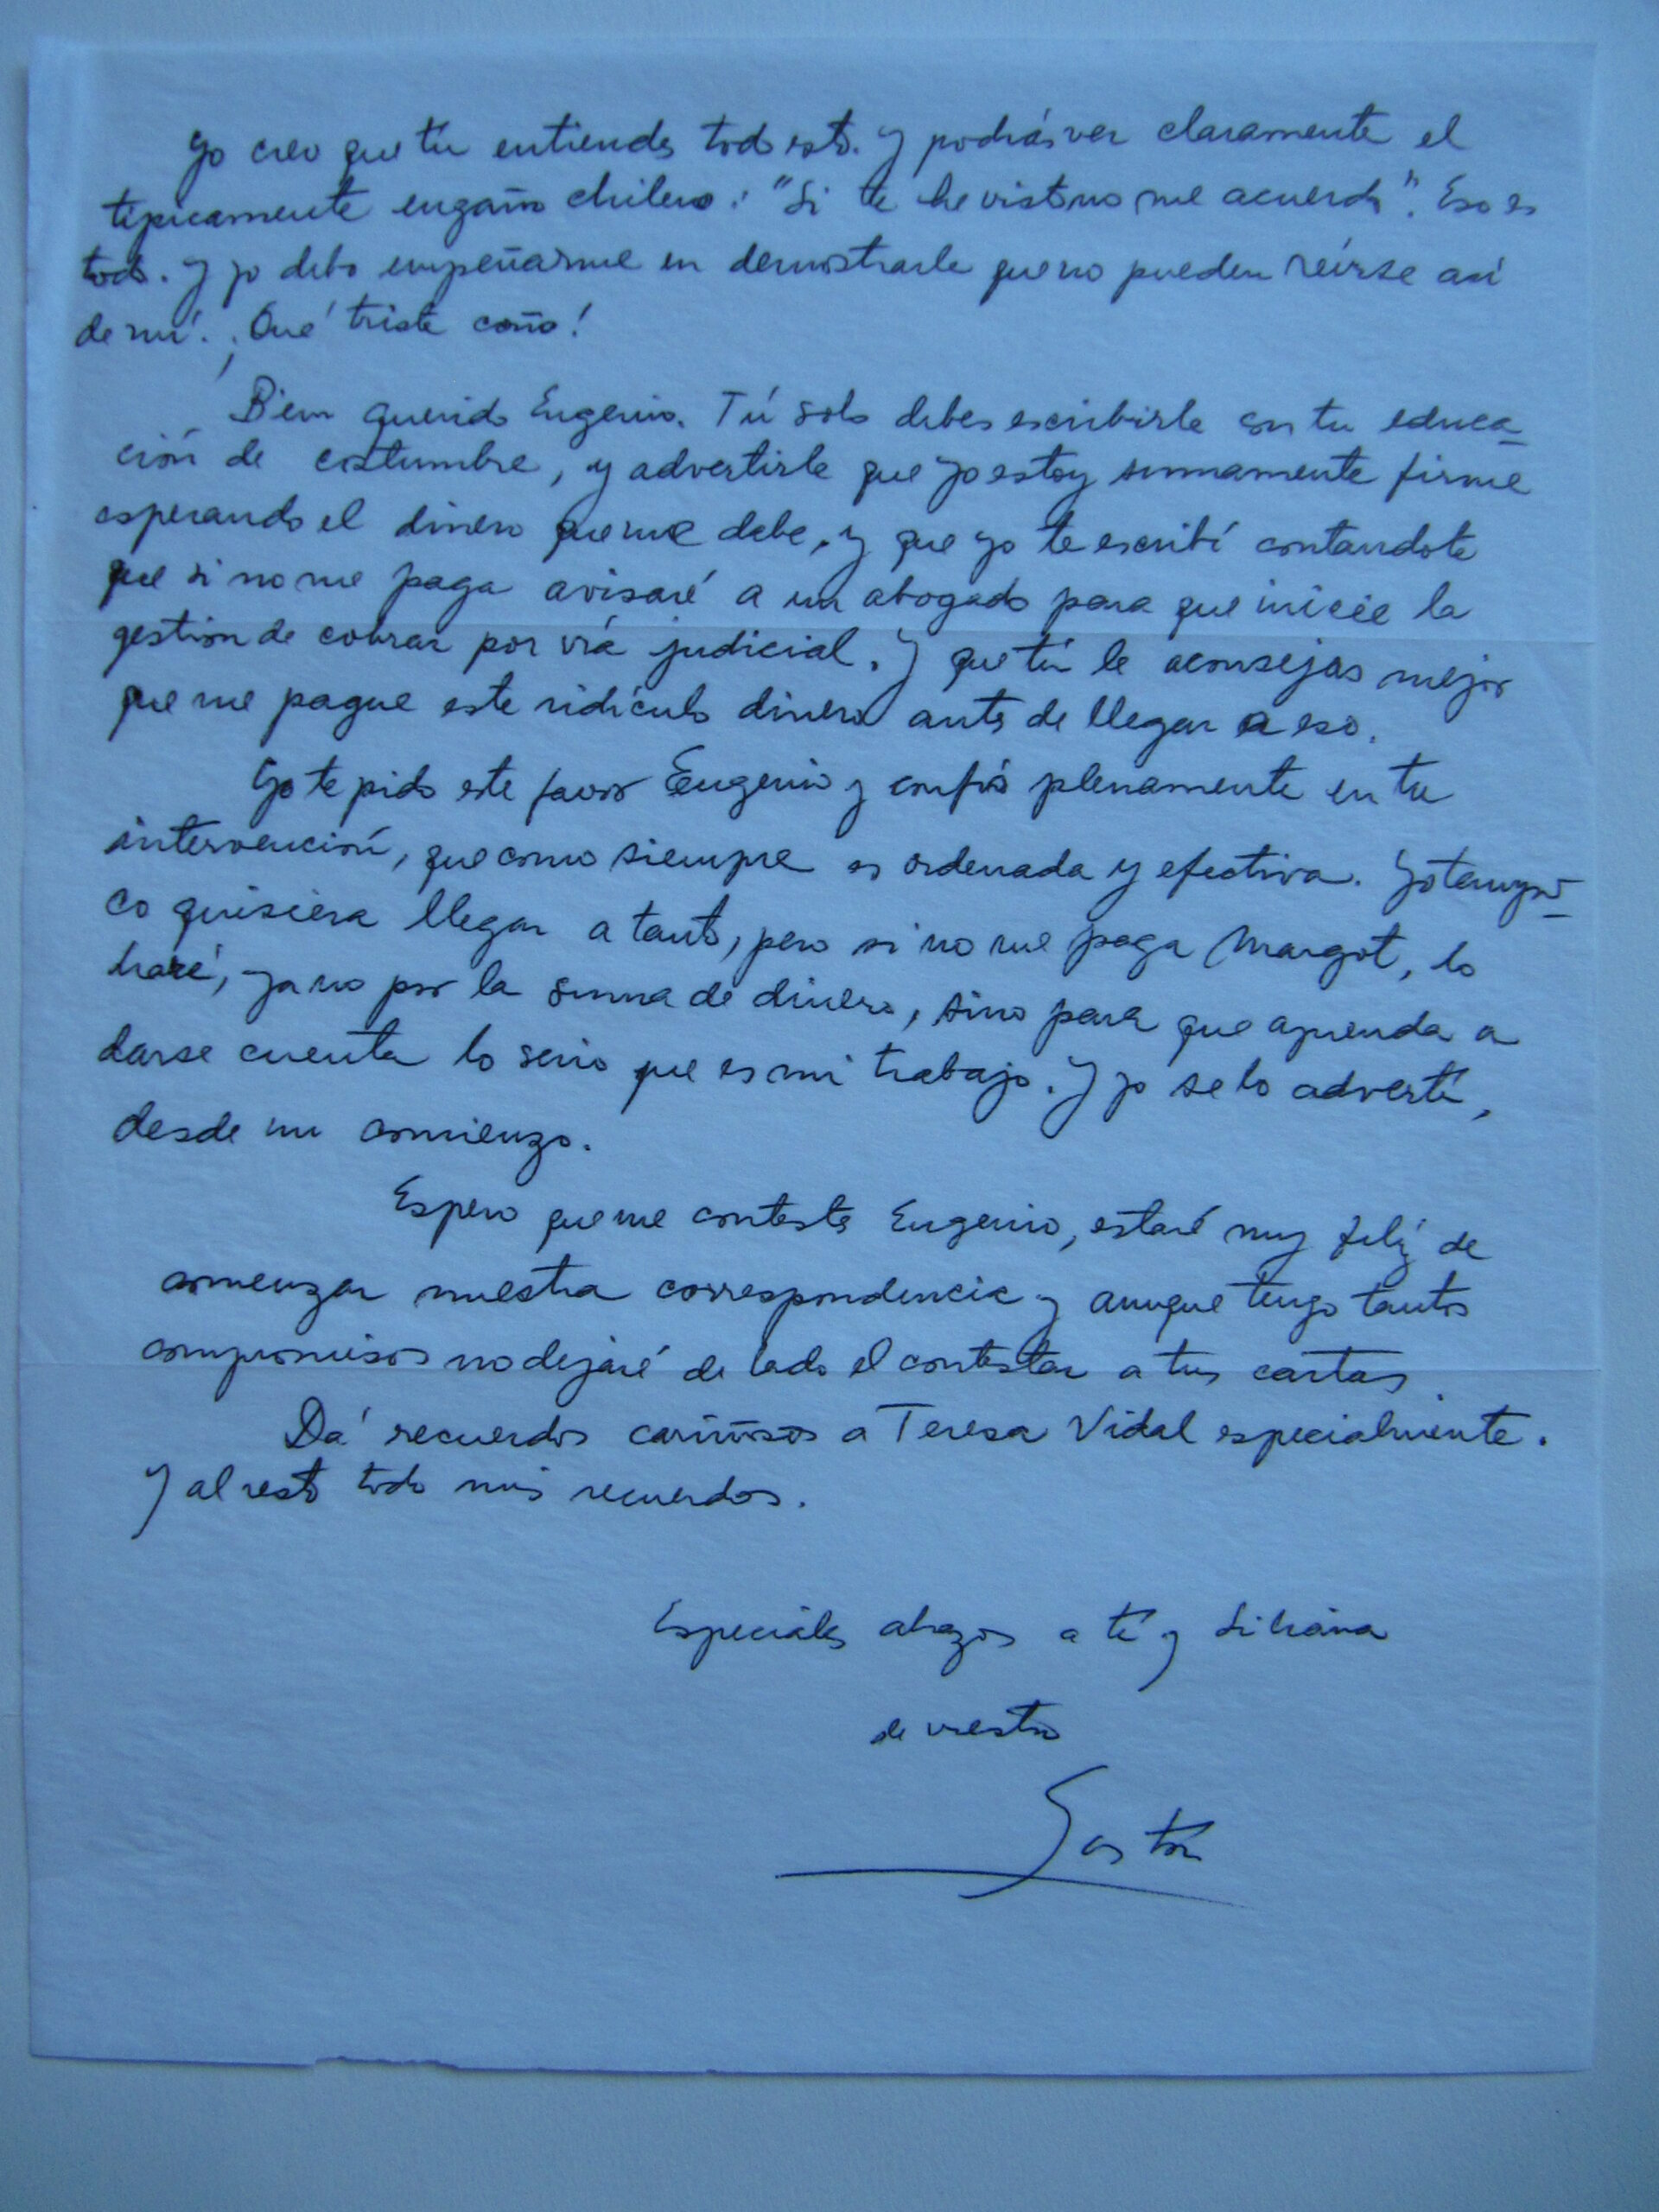 Yo creo que tú entiendes todo esto. Y podrás ver claramente el
típicamente engaño chileno: "Si te he visto no me acuerdo". Eso es
todo. Y yo debo empeñarme en demostrarle que no pueden reírse así
de mí. ¡Qué triste coño!
Bien querido Eugenio. Tú solo debes escribirle con tu educa-
ción de costumbre, y advertirle que yo estoy sumamente firme
esperando el dinero que me debe, y que yo te escribí contandote
que si no me paga avisaré a un abogado para que inicie la
gestión de cobrar por vía judicial. Y que tú le aconsejas mejor
que me pague este ridículo dinero antes de llegar a eso.
Yo te pido este favor Eugenio y confío plenamente en tu
intervención, que como siempre es ordenada y efectiva. Yo tampo-
co quisiera llegar a tanto, pero si no me paga Margot, lo
haré, ya no por la suma de dinero, sino para que aprenda a
darse cuenta lo serio que es mi trabajo. Y yo se lo advertí,
desde un comienzo.
Espero que me contestes Eugenio, estaré muy feliz de
comenzar nuestra correspondencia y aunque tengo tantos
compromisos no dejaré de lado el contestar a tus cartas.
Dá recuerdos cariñosos a Teresa Vidal especialmente.
Y al resto todo mis recuerdos.
Especiales abrazos a tí y Liliana
de vuestro
Gastón